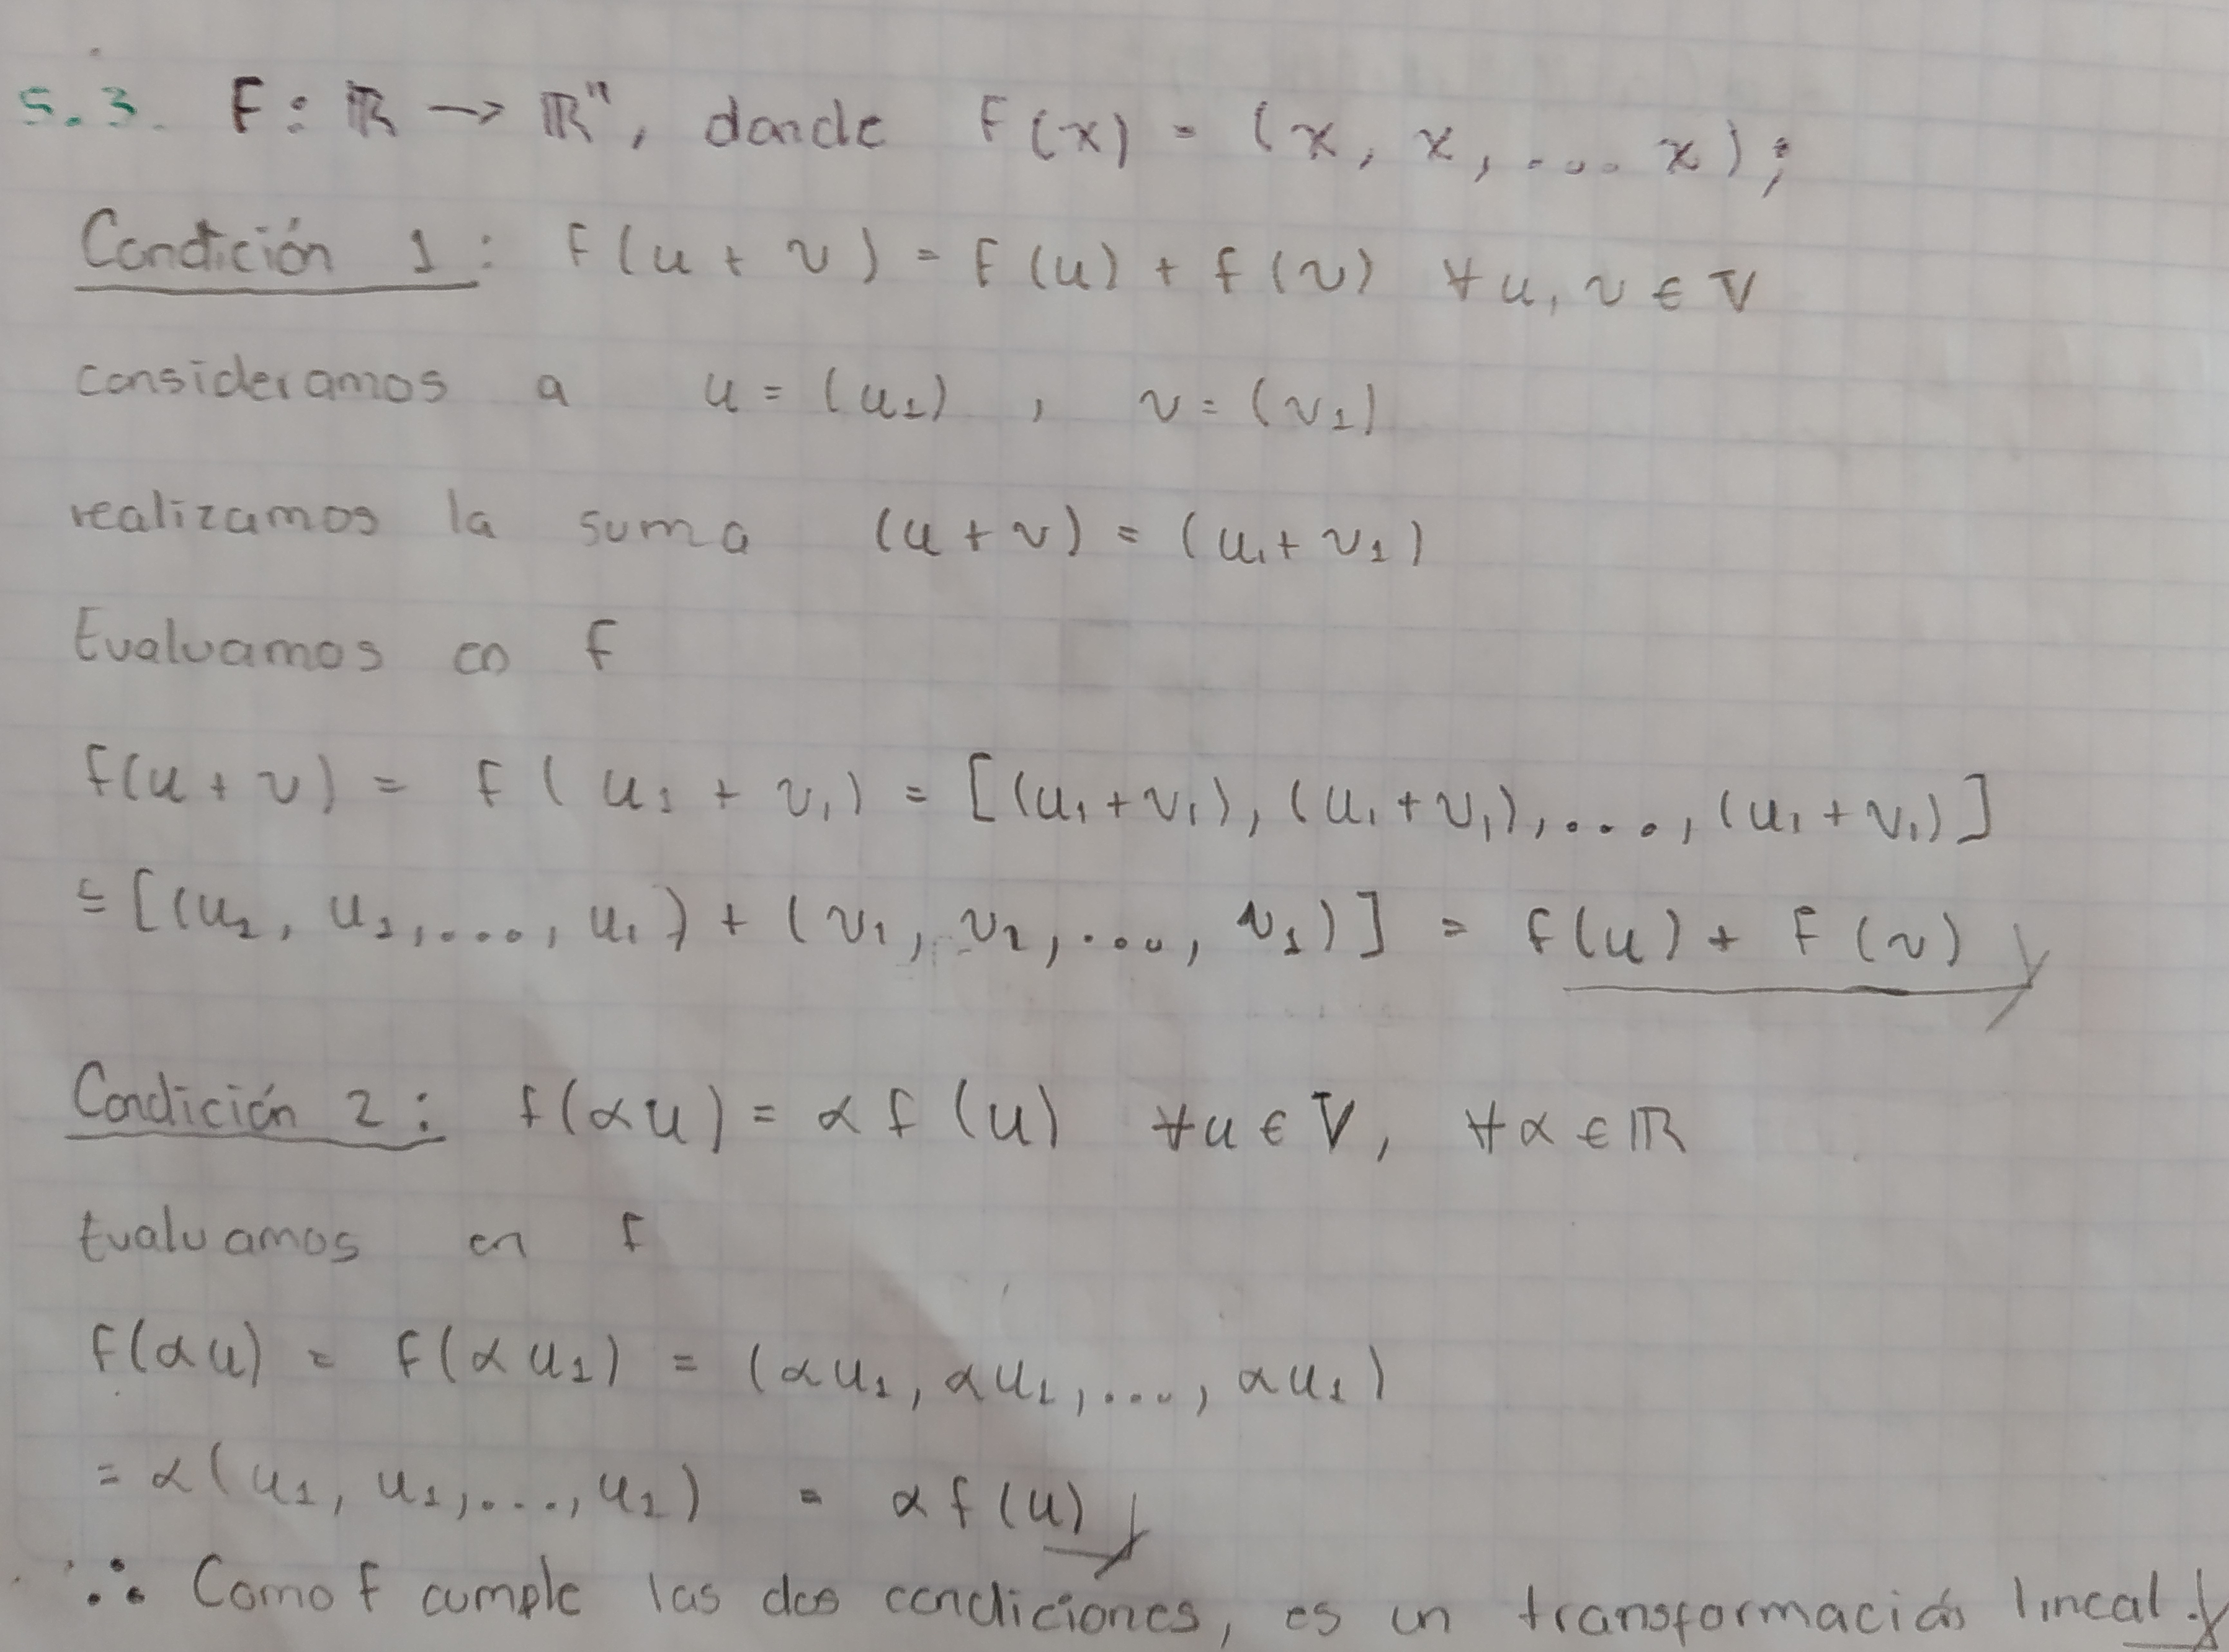 5.3. F: ℝ → ℝⁿ, donde F(x) = (x, x, .... x);
Condición 1: F(u + v) = F(u) + f(v) ∀u, v ∈ V
consideramos a u = (u₁) , v = (v₁)
realizamos la suma (u + v) = (u₁ + v₁)
Evaluamos en F
F(u + v) = F(u₁ + v₁) = [(u₁+v₁), (u₁+v₁), ...., (u₁+v₁)]
= [(u₁, u₁, ...., u₁) + (v₁, v₁, ...., v₁)] = F(u) + F(v)
Condición 2: f(αu) = αf(u) ∀u ∈ V, ∀α ∈ ℝ
Evaluamos en F
F(αu) = F(αu₁) = (αu₁, αu₁, ...., αu₁)
= α(u₁, u₁, ...., u₁) = αf(u)
∴ Como F cumple las dos condiciones, es un transformación lineal.